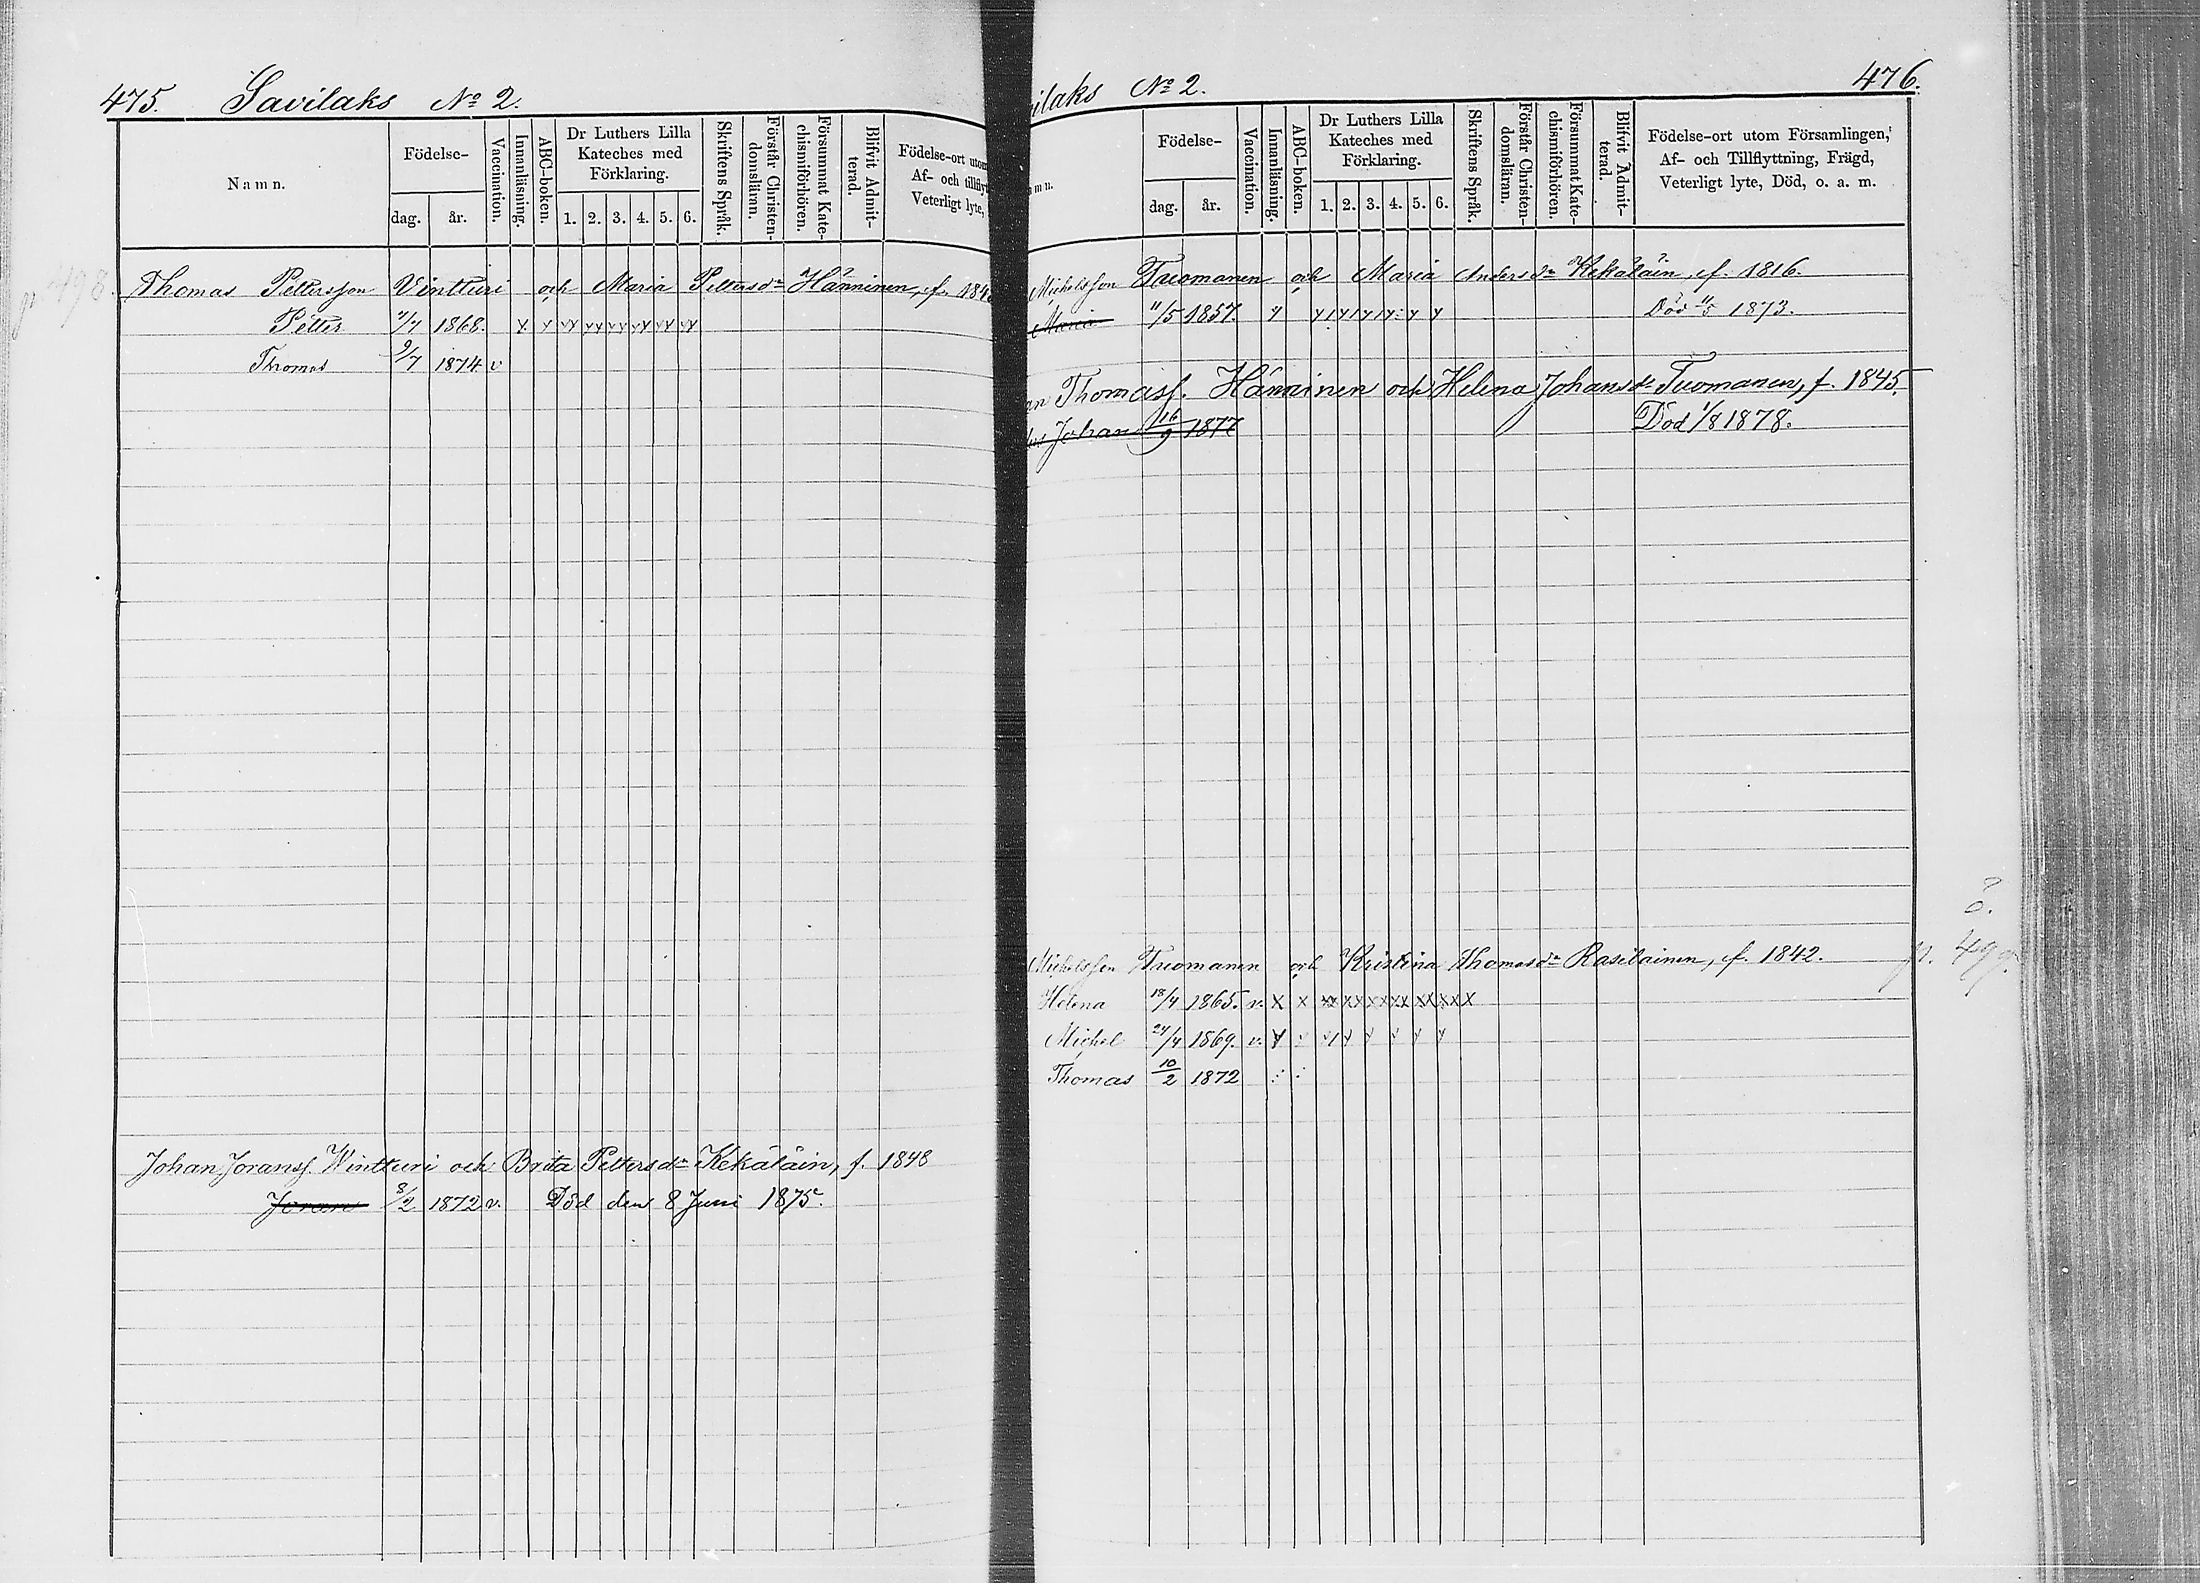 475. Savilaks No 2.
Namn.
Födelse-
dag. år.
Vaccination.
Innanläsning.
ABC-boken.
Dr Luthers Lilla
Kateches med
Förklaring.
1. 2. 3. 4. 5. 6.
Skriftens Språk.
Förstår Christen-
domsläran.
Försummat Kate-
chismiförhören.
Blifvit Admit-
terad.
Födelse-ort utom
Af- och tillflyt
Veterligt lyte,
p. 498.
Thomas Pettersson Vintturi och Maria Pettersdr Hänninen, f. 184
Petter 1868. x y yy yy yy yy yy yy
Thomas 9/7 1874 v
Johan Joranss. Wintturi och Brita Pettersdr Kekäläin, f. 1848
Joran 8/2 1872 v. Död den 8 Juni 1875.
ilaks No 2. 476.
mn.
Födelse-
dag. år.
Vaccination.
Innanläsning.
ABC-boken.
Dr Luthers Lilla
Kateches med
Förklaring.
1. 2. 3. 4. 5. 6.
Skriftens Språk.
Förstår Christen-
domsläran.
Försummat Kate-
chismiförhören.
Blifvit Admit-
terad.
Födelse-ort utom Församlingen,
Af- och Tillflyttning, Frägd,
Veterligt lyte, Död, o. a. m.
Michelsson Tuomanen och Maria Andersdr Kekäläin, f. 1816.
Maria 11/5 1857. y y y y y y y Död 11/5 1873.
an Thomass. Hänninen och Helena Johansdr Tuomanen, f. 1845.
Johan 16/9 1877 Död 1/8 1878.
Michelsson Tuomanen och Kristina Thomasdr Rasilainen, f. 1842. p. 499.
Helena 18/4 1865. v. x x xx xx xx xx xx xx x
Michel 24/4 1869. v. y y y y y y y
Thomas 10/2 1872